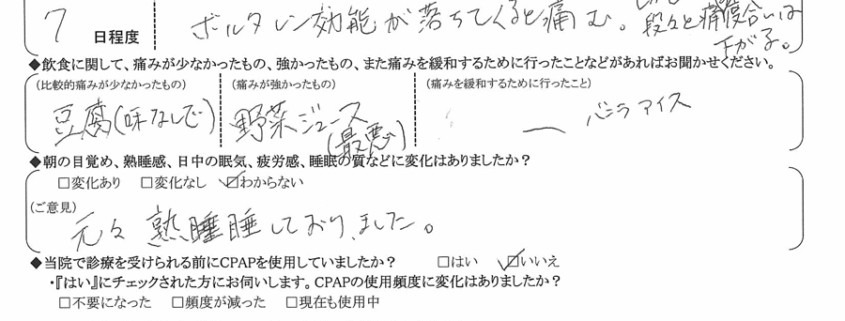 7 日程度
ボルタレン効能が落ちてくると痛む。
段々と痛度合いは
下がる。
◆飲食に関して、痛みが少なかったもの、強かったもの、また痛みを緩和するために行ったことなどがあればお聞かせください。
(比較的痛みが少なかったもの) (痛みが強かったもの) (痛みを緩和するために行ったこと)
豆腐(味なしで) 野菜ジュース ー バニラアイス
(最悪)
◆朝の目覚め、熟睡感、日中の眠気、疲労感、睡眠の質などに変化はありましたか?
□変化あり □変化なし ☑わからない
(ご意見)
元々熟睡睡しておりました。
◆当院で診療を受けられる前にCPAPを使用していましたか? □はい ☑いいえ
・『はい』にチェックされた方にお伺いします。CPAPの使用頻度に変化はありましたか?
□不要になった □頻度が減った □現在も使用中